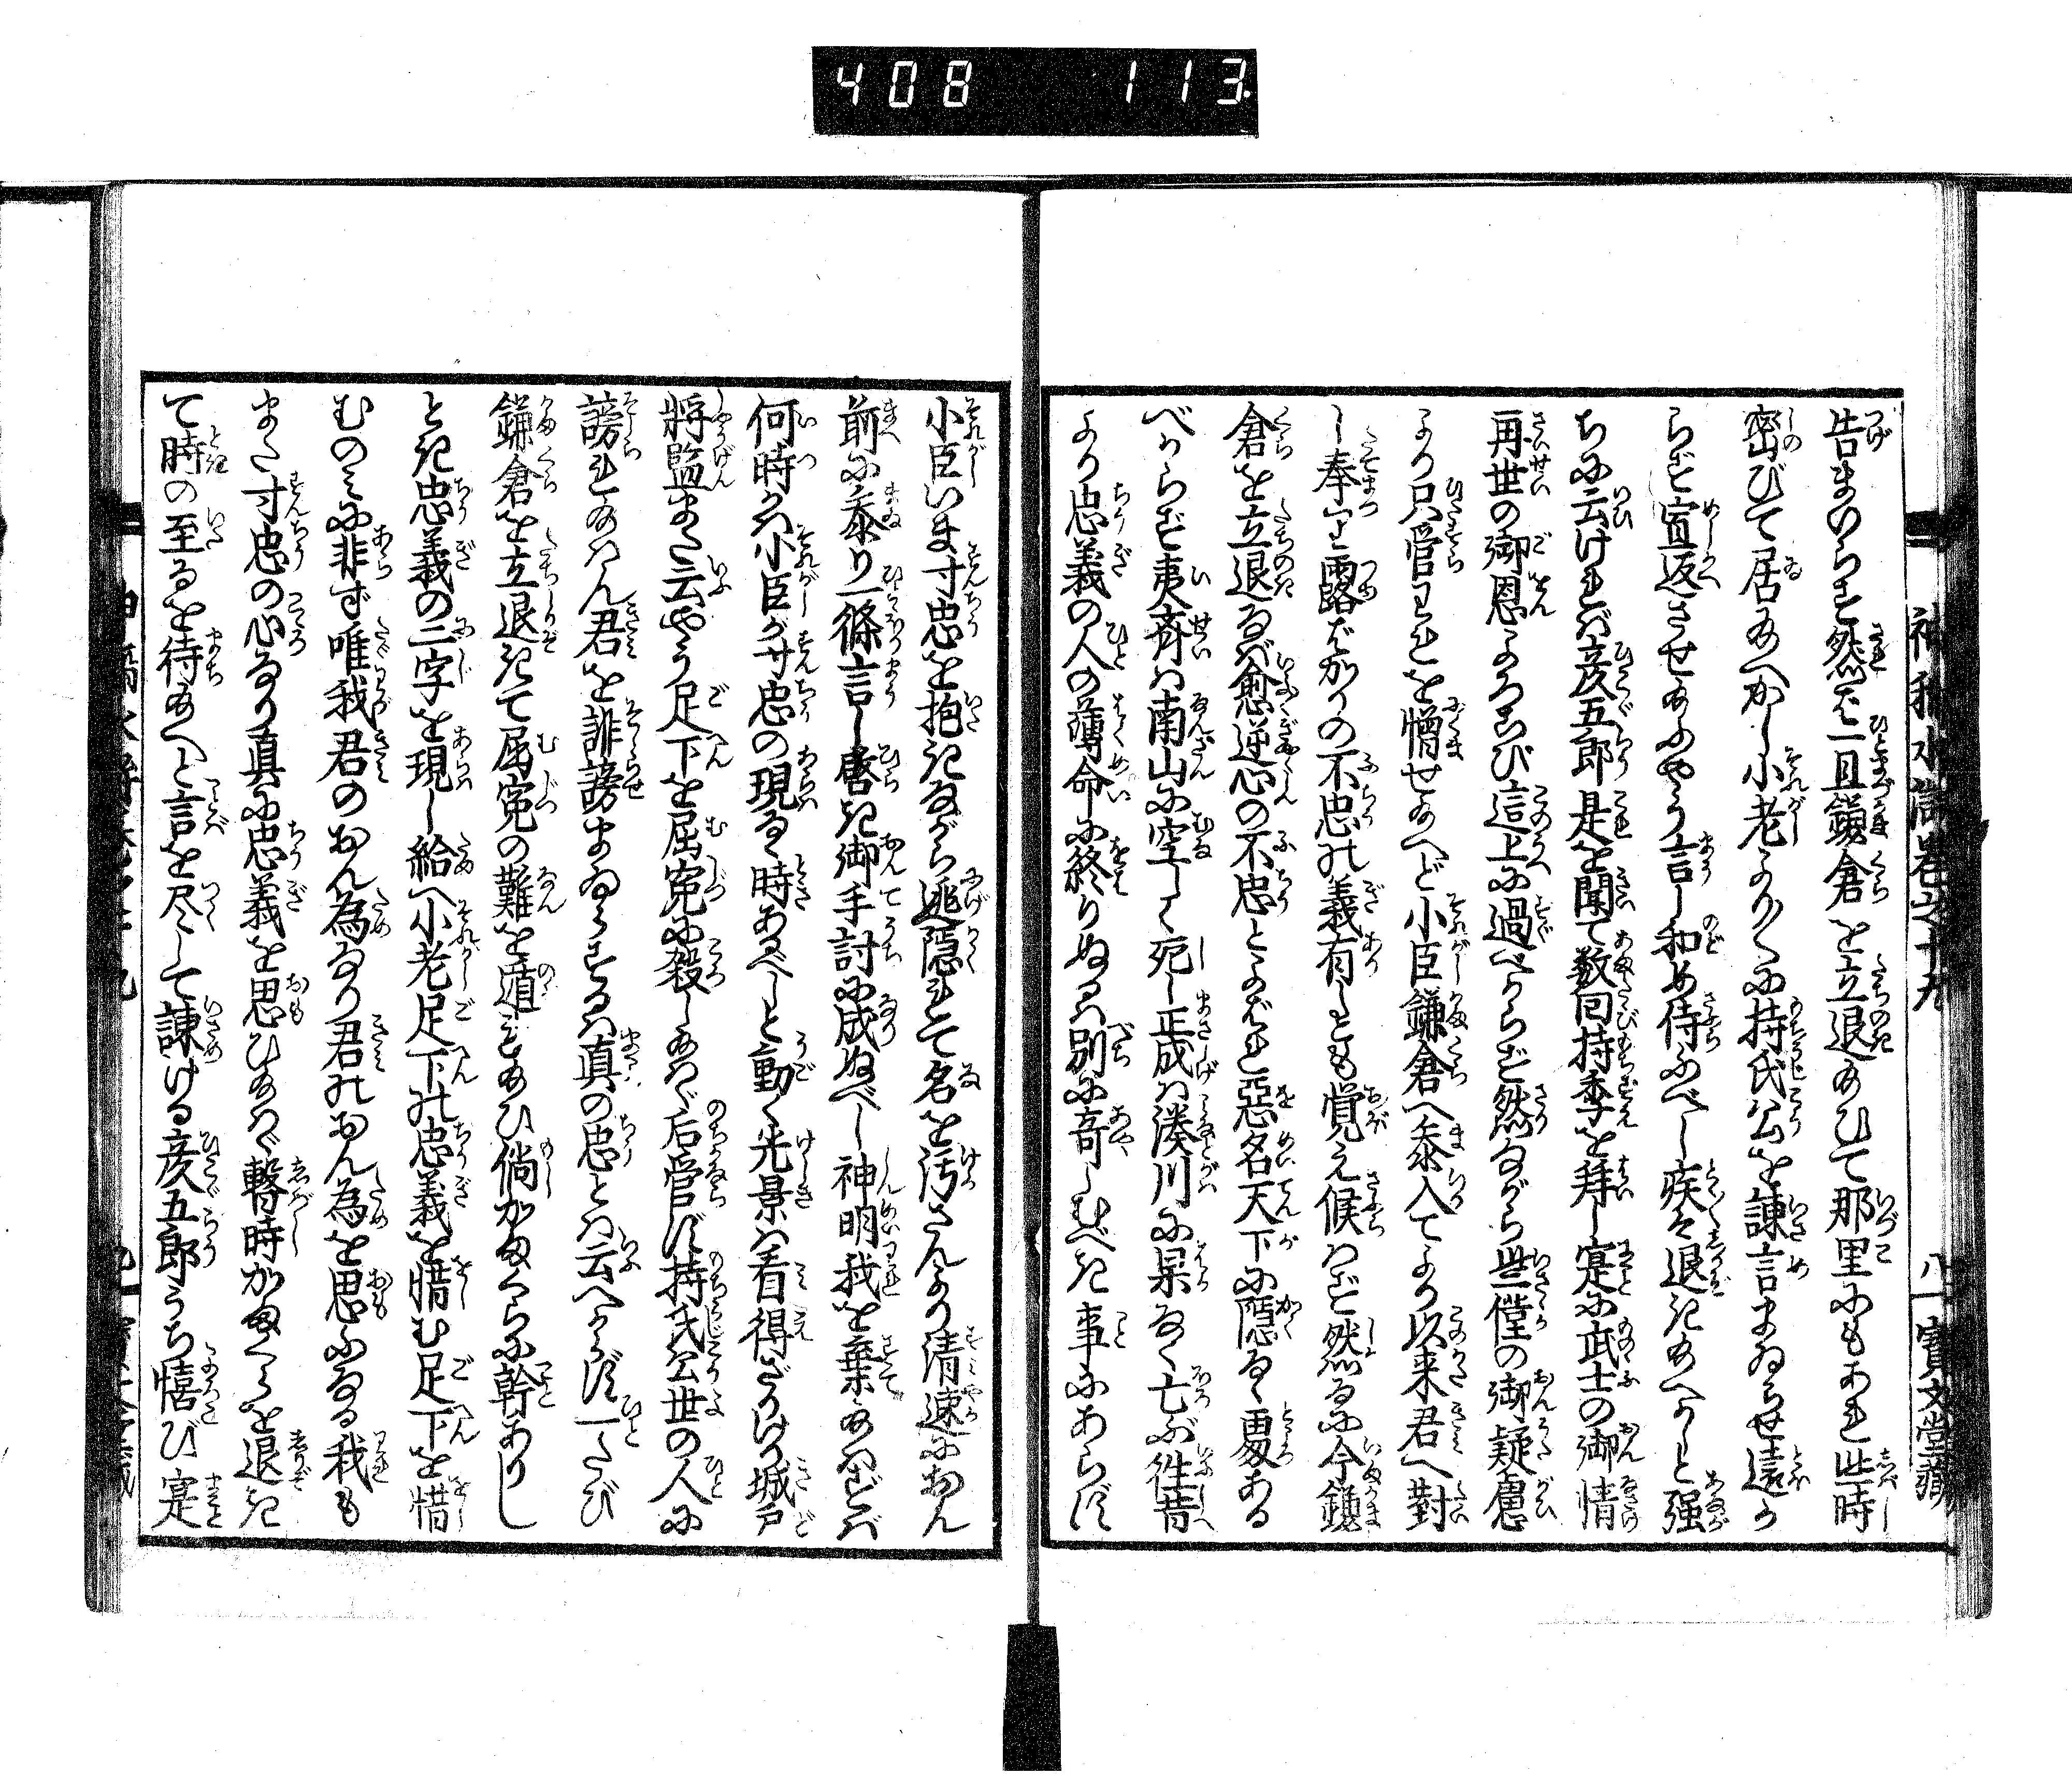 408 113
神稲水滸巻之十九 八 寳文堂藏
告まいらせん然ば一旦鎌倉を立退あひて那里にもあれ些時
密びて居給へかし小老よりよくに持氏公を諫言まゐらせ遠か
らず宣返させあふやう言し和め侍ふべし疾々退き給へかしと强
ちに云ければ彦五郎是を聞て数回持季を拜し寔に武士の御情
再世の御恩よろこび這上に過べからず然ながら些僅の御疑慮
より只管われを憎せあへど小臣鎌倉へ参入てより以来君へ對
し奉りて露ばかりの不忠の義有しとも覚え候はず然るに今鎌
倉を立退ば愈逆心の不忠とよばれ惡名天下に隱るゝ処ある
べからず夷齊は南山に空しく死し正成は湊川に杲なく亡ぶ徃昔
より忠義の人の薄命に終りぬるは別に奇しむべき事にあらず
小臣いま寸忠を抱きながら逃隱れて名を汚さんより清速におん
前に参り一條言し啓き御手討に成ぬべし神明我を棄あはずば
何時かは小臣が寸忠の現るゝ時あるべしと動く光景は看得ざりけり城戸
將監また云やう足下を屈寃に殺しあはゞ后管ず持氏公世の人に
謗れあはん君を誹謗まゐらするは真の忠とは云へからず一たび
鎌倉を立退きて屈寃の難を遁れあひ倘かまくらに幹ありし
とき忠義の二字を現し給へ小老足下の忠義を惜む足下を惜
むのみに非ず唯我君のおん為なり君のおん為を思ふなる我も
また寸忠の心なり真に忠義を思ひあはゞ暫時かまくらを退き
て時の至るを待給へと言を尽して諌ける彦五郎うち憘び寔